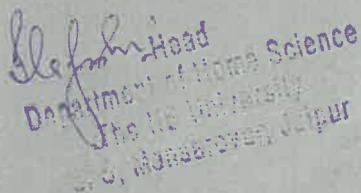 Head
Department of Home Science
The IIS University
Mansarovar, Jaipur